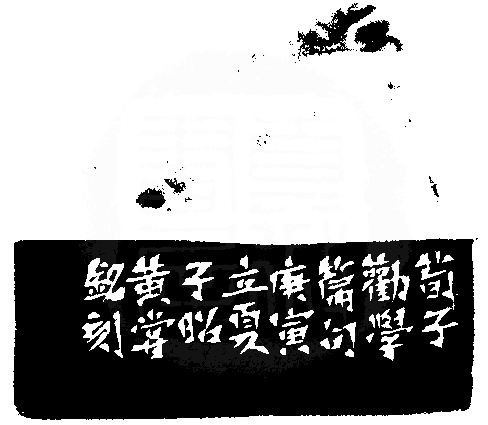 荀子
勸學
篇句
庚寅
立夏
子昭
黃嘗
銘刻